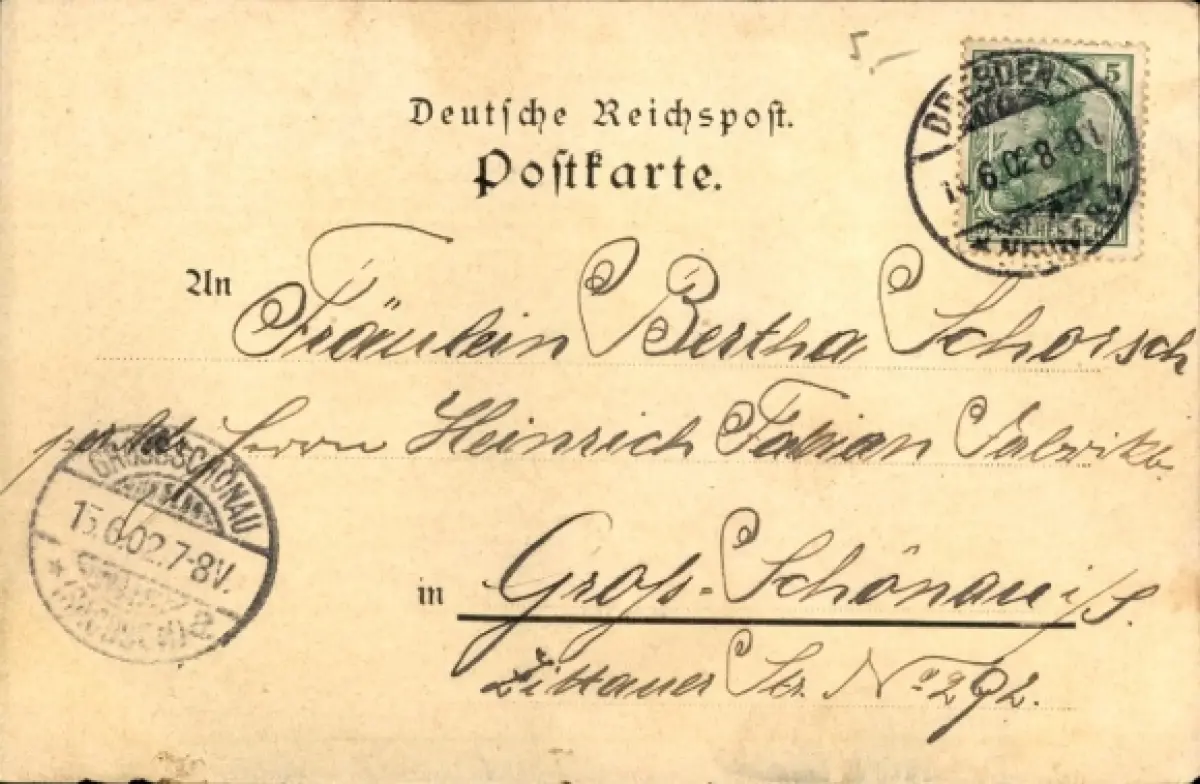 5.-
Deutsche Reichspost.
Postkarte.
5
DRESDEN-
6.02 8-9V.
An Fräulein Bertha Schorsch
Herrn Heinrich Fabian Fabrikb.
GROSSSCHÖNAU
15.6.02.7-8V.
(SACHSEN) 2
in Gross-Schönau i/S.
Zittauer Str. No 292.